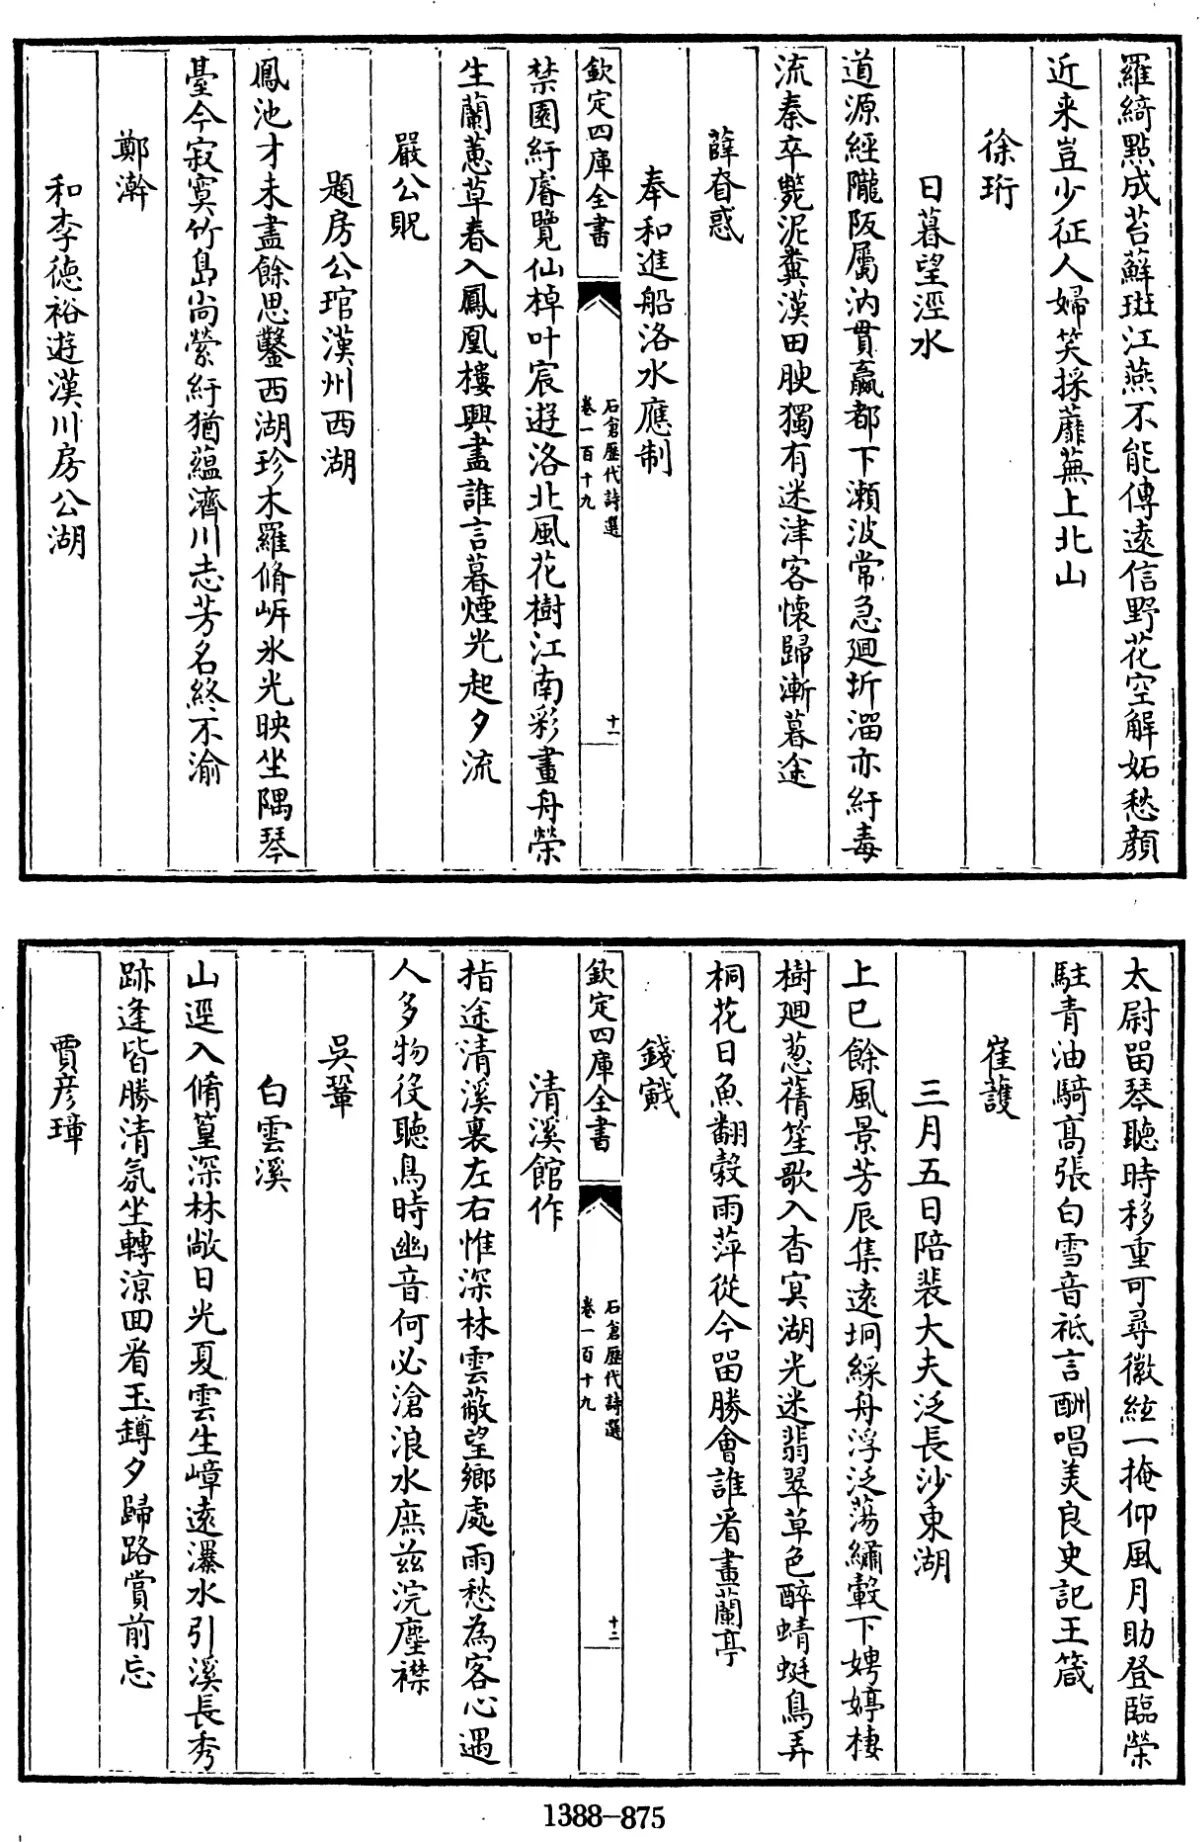 羅綺點成苔蘚斑江燕不能傳遠信野花空解妬愁顔
近来豈少征人婦笑採蘼蕪上北山
徐珩
日暮望涇水
道源經隴阪屬汭貫嬴都下瀬波常急廻圻溜亦紆毒
流秦卒斃泥糞漢田腴獨有迷津客懷歸漸暮途
薛眘惑
奉和進船洛水應制
禁園紆睿覽仙棹叶宸遊洛北風花樹江南彩畫舟榮
生蘭蕙草春入鳳凰樓興盡誰言暮煙光起夕流
嚴公貺
題房公琯漢州西湖
鳳池才未盡餘思鑿西湖珍木羅脩岍氷光映坐隅琴
臺今寂寞竹島尚縈紆猶藴濟川志芳名終不渝
鄭澣
和李德裕遊漢川房公湖
欽定四庫全書
石倉歷代詩選
卷一百十九
十一
太尉畱琴聽時移重可尋徽絃一掩仰風月助登臨榮
駐青油騎高張白雪音祗言酬唱美良史記王箴
崔護
三月五日陪裴大夫泛長沙東湖
上巳餘風景芳辰集遠坰綵舟浮泛蕩繡轂下娉婷棲
樹廻葱蒨笙歌入杳冥湖光迷翡翠草色醉蜻蜓鳥弄
桐花日魚翻穀雨萍從今畱勝會誰看畫蘭亭
錢戭
清溪館作
指途清溪裏左右惟深林雲蔽望鄉處雨愁為客心遇
人多物役聽鳥時幽音何必滄浪水庶兹浣塵襟
吳鞏
白雲溪
山逕入脩篁深林敞日光夏雲生嶂遠瀑水引溪長秀
跡逢皆勝清氛坐轉涼回看玉罇夕歸路賞前忘
賈彦璋
欽定四庫全書
石倉歷代詩選
卷一百十九
十二
1388-875